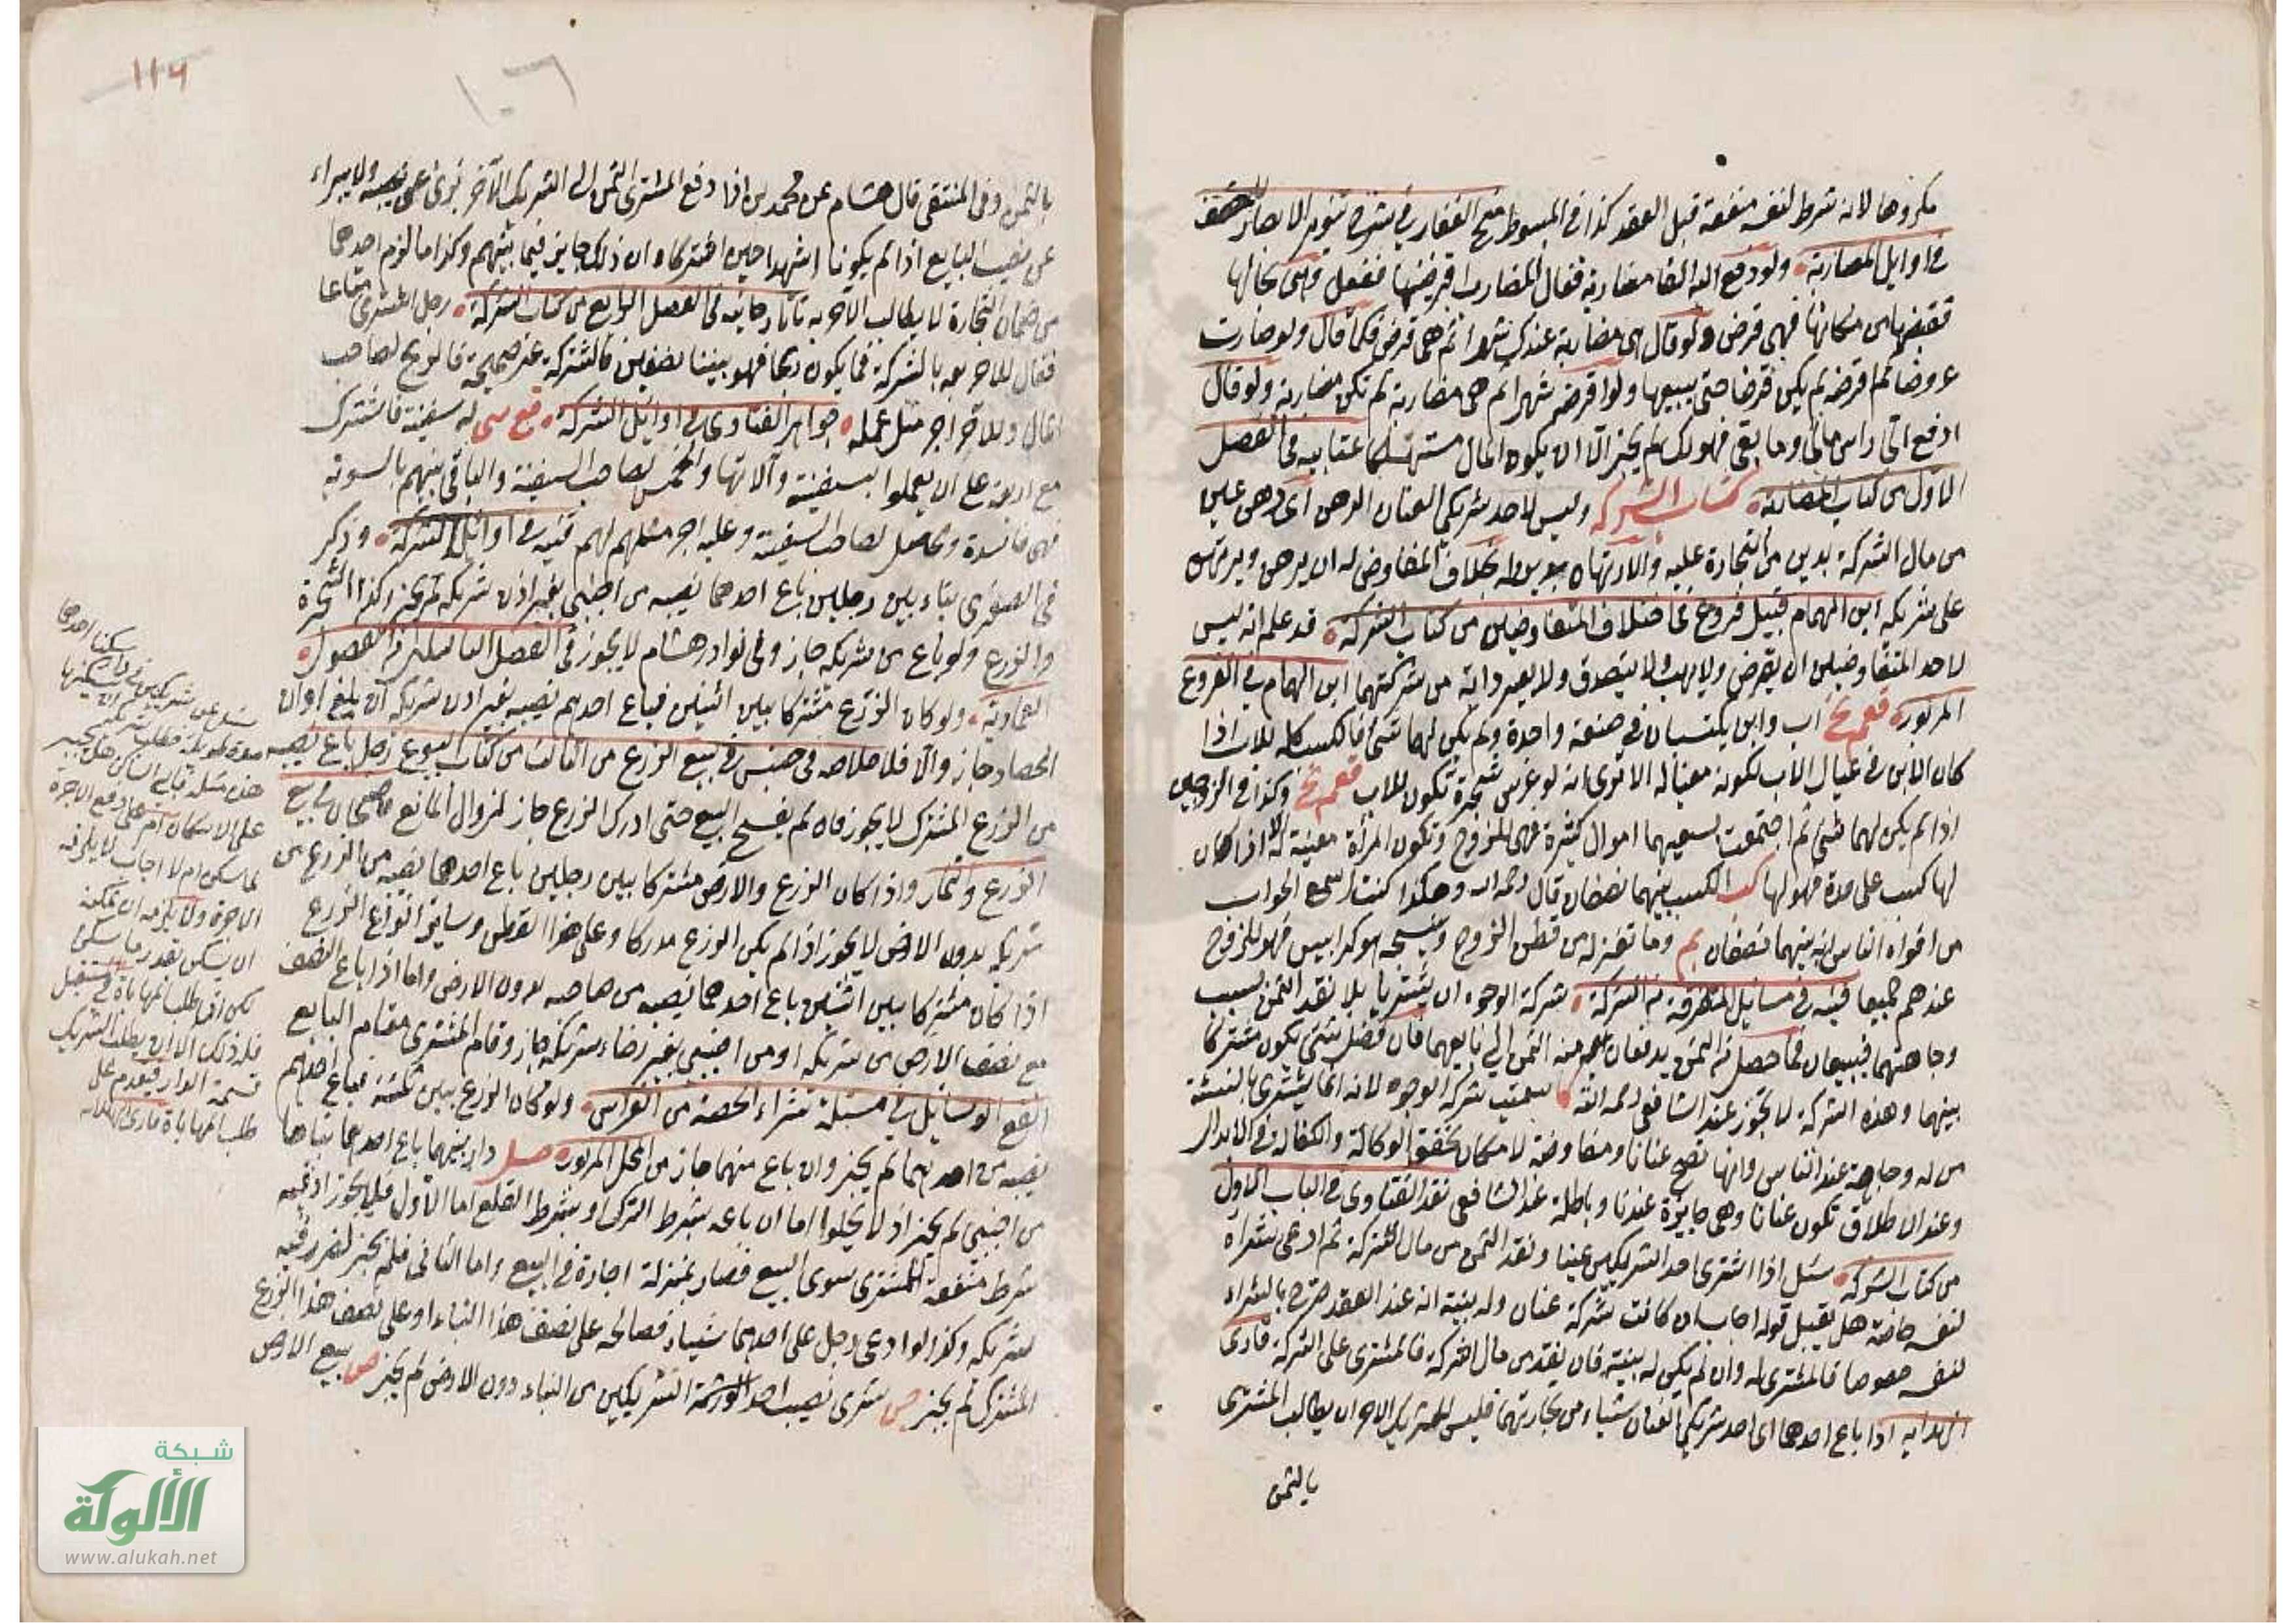 مكروها لانه شرط لنفسه منفعة قبل العقد كذا في المبسوط منح الغفار في شرح تنوير الابصار للمصنف
في اوايل المضاربة ولو دفع اليه الفا مضاربة فقال المضارب اقرضنيها ففعل وهي بحالها
فقبضها من مكانها فهي قرض ولو قال هي مضاربة عندك شهرا ثم هي قرض فكما قال ولو صارت
عروضا ثم اقرضه لم يكن قرضا حتى يبيعها ولو اقرضه شهرا ثم هي مضاربة لم تكن مضاربة ولو قال
ادفع الي راس مالي وما بقي فهو لك لم يجز الا ان يكون المال مستهلكا عتابيه في الفصل
الاول من كتاب المضاربة كتاب الشركه وليس لاحد شريكي العنان الرهن اي رهن عين
من مال الشركة بدين من التجارة عليه والارتهان بدين له بخلاف المفاوض له ان يرهن ويرتهن
على شريكه ابن الهمام قبيل فروع في اختلاف المتفاوضين من كتاب الشركة قد علم انه ليس
لاحد المتفاوضين ان يقرض ولا يهب ولا يتصدق ولا يعير دابة من شركتهما ابن الهمام في الفروع
المزبورة اب وابن يكتسبان في صنعة واحدة ولم يكن لهما شيء فالكسب كله للاب اذا
كان الابن في عيال الاب لكونه معينا له الا ترى انه لو غرس شجرة تكون للاب وكذا في الزوجين
اذا لم يكن لهما شيء ثم اجتمعت بسعيهما اموال كثيرة فهي للزوج وتكون المرأة معينة له الا اذا كان
لها كسب على حدة فهو لها الكسب بينهما نصفان قال رحمه الله وهكذا كنت اسمع الجواب
من افواه الناس انه بينهما نصفان بم وما تغزله من قطن الزوج وينسجه هو كرابيس فهو للزوج
عندهم جميعا قنيه في مسايل متفرقة من الشركة شركة الوجوه ان يشتريا بلا نقد الثمن بسبب
وجاهتهما فيبيعان فما حصل من الثمن يدفعان منه الثمن الى بايعهما فان فضل شيء يكون مشتركا
بينهما وهذه الشركة لا تجوز عند الشافعي رحمه الله سميت شركة الوجوه لانه انما يشتري بالنسئة
من له وجاهة عند الناس وانها تصح عنانا ومفاوضة لامكان تحقق الوكالة والكفالة في الابدال
وعند الاطلاق تكون عنانا وهي جايزة عندنا وباطلة عند الشافعي نقد الفتاوى في الباب الاول
من كتاب الشركه سئل اذا اشترى احد الشريكين عينا ونقد الثمن من مال الشركة ثم ادعى شراه
لنفسه خاصة هل يقبل قوله اجاب ان كانت شركة عنان وله بينة انه عند العقد صرح بالشراء
لنفسه خصوصا فالمشترى له وان لم يكن له بينة فان نقد من مال الشركة فالمشترى على الشركة قارئ
الهدايه اذا باع احدهما اي احد شريكي العنان شياء من تجارتهما فليس للشريك الاخر ان يطالب المشتري
بالثمن
١١٦
١٠٦
بالثمن وفي المنتقى قال هشام عن محمد اذا دفع المشتري الثمن الى الشريك الآخر برئ عن نصيبه ولا يبراء
عن نصيب البايع اذا لم يكونا اشهدا حين اشتركا ان ذلك جايز فيما بينهم وكذا ما لزم احدهما
من ضمان التجارة لا يطالب الآخر به تاتارخانيه في الفصل الرابع من كتاب الشركة رجل اشترى متاعا
فقال للآخر بعه بالشركة فما يكون ربحا فهو بيننا نصفين فالشركة غير صحيحة فالربح لصاحب
المال وللآخر اجر مثل عمله جواهر الفتاوى في اوايل الشركة له سفينة فاشترك
مع اربعة على ان يعملوا بسفينته وآلاتها والخمس لصاحب السفينة والباقي بينهم بالسوية
فهي فاسدة والحاصل لصاحب السفينة وعليه اجر مثلهم لهم قنيه في اوائل الشركة وذكر
في الصغرى بناء بين رجلين باع احدهما نصيبه من اجنبي بغير اذن شريكه لم يجز وكذا الشجرة
والزرع ولو باع من شريكه جاز وفي نوادر هشام لا يجوز في الفصل من الفصول
العمادية ولو كان الزرع مشتركا بين اثنين فباع احدهم نصيبه بغير اذن شريكه ان بلغ اوان
الحصاد جاز والا فلا خلاصه في جنس في بيع الزرع من الثالث من كتاب البيوع رجل باع نصيبه
من الزرع المشترك لا يجوز فان لم يفسخ البيع حتى ادرك الزرع جاز لزوال المانع قاضيخان في بيع
الزرع والثمار واذا كان الزرع والارض مشتركا بين رجلين باع احدهما نصيبه من الزرع من
شريكه بدون الارض لا يجوز اذا لم يكن الزرع مدركا وعلى هذا القطن وساير انواع الزرع
اذا كان مشتركا بين اثنين باع احدهما نصيبه من صاحبه بدون الارض واما اذا باع النصف
مع نصف الارض من شريكه او من اجنبي بغير رضاء شريكه جاز وقام المشتري مقام البايع
انفع الوسايل في مسئلة شراء الحصة من الغراس ولو كان الزرع بين ثلثة فباع احدهم
نصيبه من احدهما لم يجز وان باع منهما جاز من المحل المزبور دار بينهما باع احدهما بناها
من اجنبي لم يجز اذ لا يخلوا اما ان باعه بشرط الترك او بشرط القلع اما الاول فلا يجوز اذ فيه
شرط منفعة للمشتري سوى البيع فصار بمنزلة اجارة في البيع واما الثاني فلم يجز لضرر فيه
لشريكه وكذا لو ادعى رجل على احدهما شياء فصالحه على نصف هذا البناء او على نصف هذا الزرع
المشترك لم يجز ص شرى نصيب احد الورثة الشريكين من البناء دون الارض لم يجز ص بيع الارض
سئل عن شريكين في دار سكنها احدهما
مدة طويلة فطلب شريكه ان يسكنها
على الاسكان ام على دفع الاجرة
لما سكن ام لا اجاب لا يلزمه
الاجرة ولا يلزمه ان يمكنه
ان يسكن بقدر ما سكن
لكن اذا طلب المهاياة في المستقبل
فله ذلك الا ان يطلب الشريك
قسمة الدار فيقدم على
طلب المهاياة قارئ الهدايه
شبكة
الألوكة
www.alukah.net